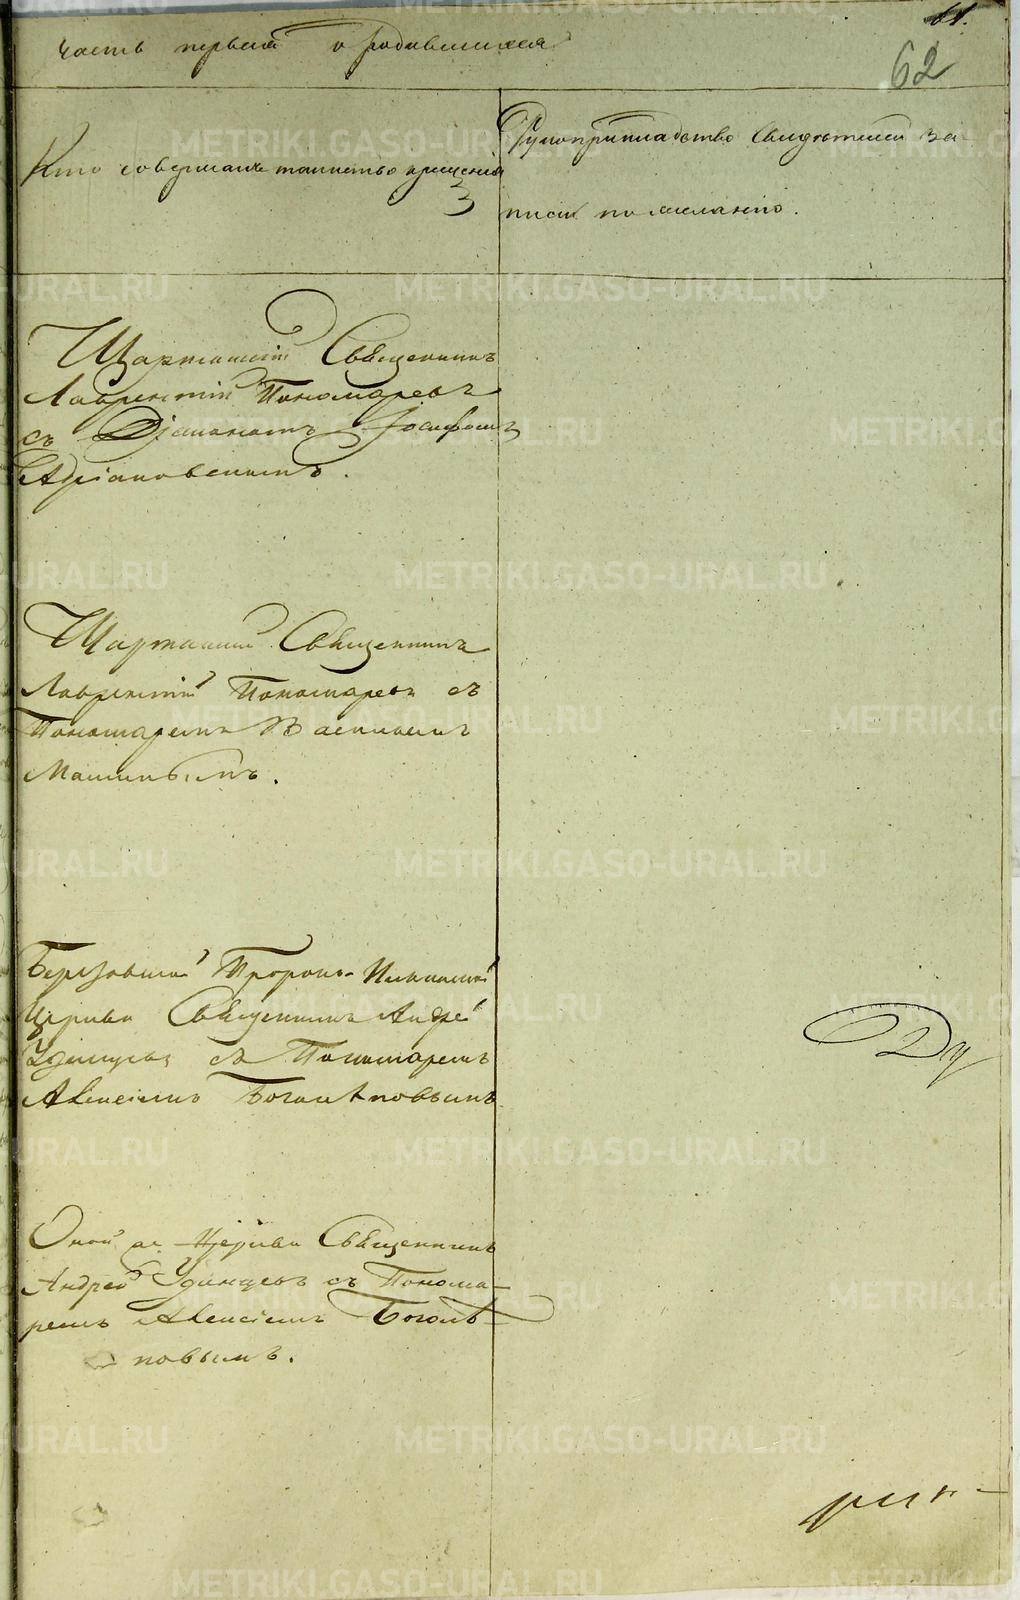 61.
62
Часть первая о родившихся
Кто совершалъ таинство крещенія
Рукоприкладство свидѣтелей за-
писи по желанію.
Шарташскій Священникъ
Лаврентій Пономаревъ
съ Діакономъ Іосифомъ
Адріановскимъ.
Шарташскій Священникъ
Лаврентій Пономаревъ съ
Пономаремъ Василіемъ
Машинымъ.
Березовской Пророко-Ильинской
Церкви Священникъ Андрей
Удинцевъ съ Пономаремъ
Алексіемъ Боголѣповымъ
Оной же Церкви Священникъ
Андрей Удинцевъ съ Понома-
ремъ Алексіемъ Боголѣ-
повымъ.
METRIKI.GASO-URAL.RU